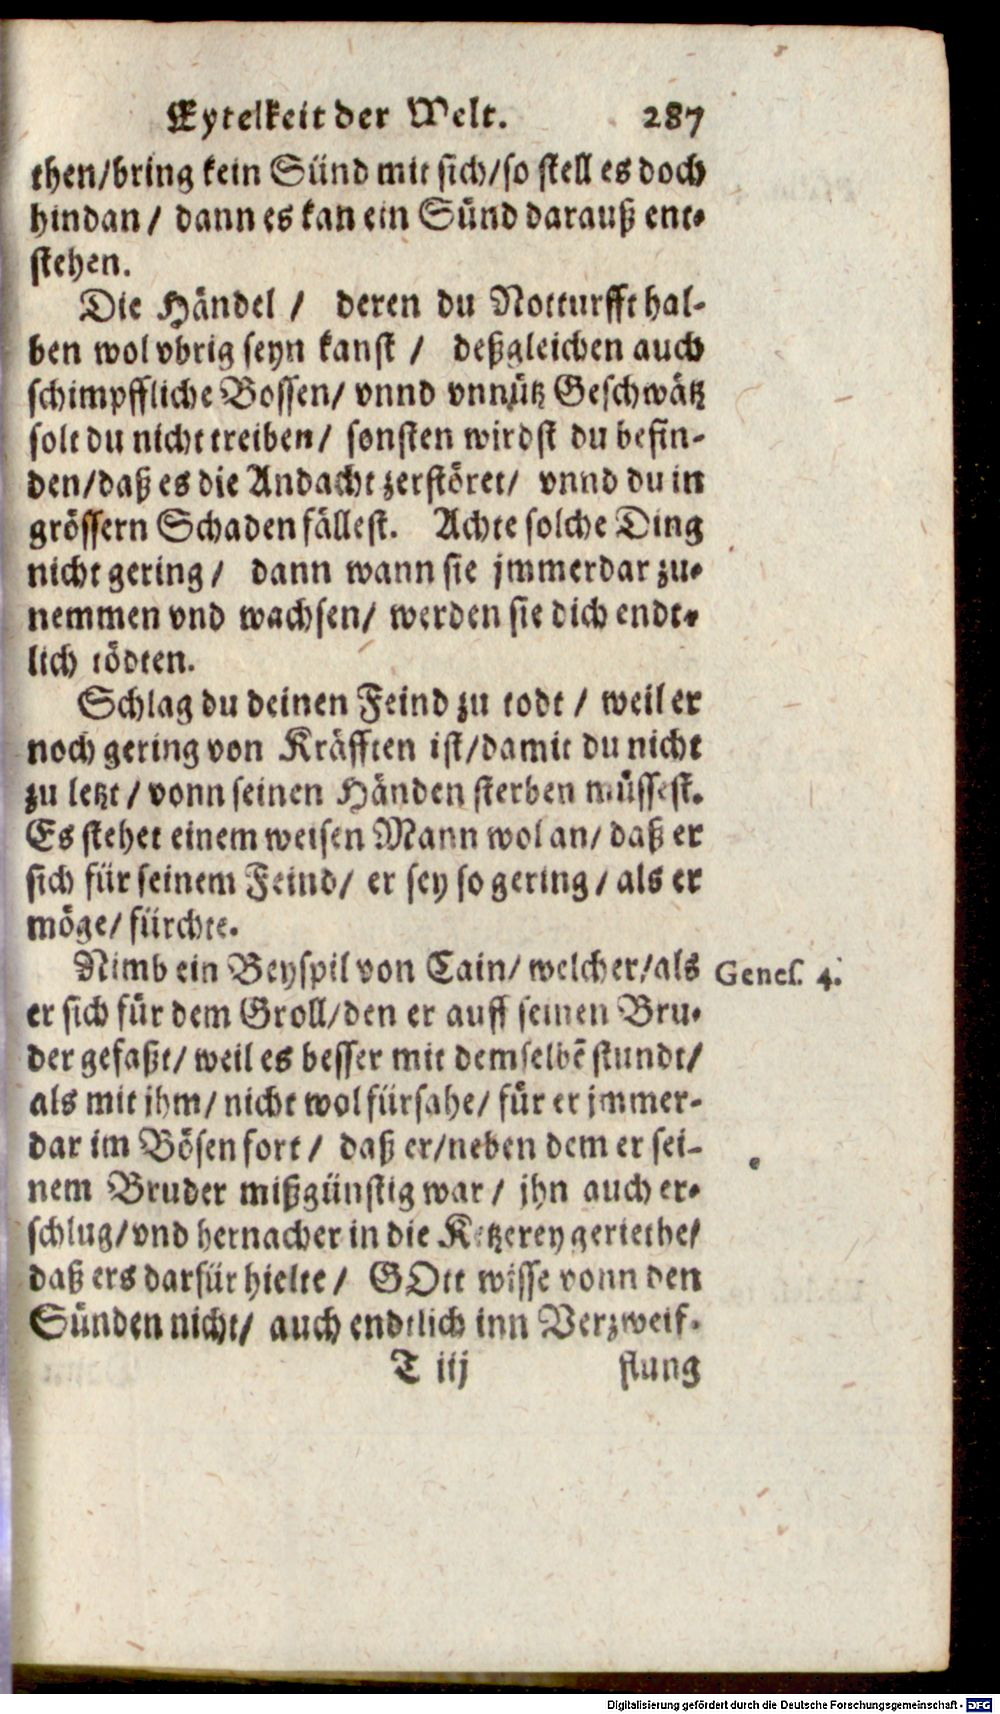 Eytelkeit der Welt. 287
then/bring kein Sünd mit sich/so stell es doch
hindan / dann es kan ein Sünd darauß ent-
stehen.
Die Händel / deren du Notturfft hal-
ben wol vbrig seyn kanst / deßgleichen auch
schimpffliche Bossen/ vnnd vnnütz Geschwätz
solt du nicht treiben/ sonsten wirdst du befin-
den/daß es die Andacht zerstöret/ vnnd du in
grössern Schaden fällest. Achte solche Ding
nicht gering / dann wann sie jmmerdar zu-
nemmen vnd wachsen/ werden sie dich endt-
lich tödten.
Schlag du deinen Feind zu todt / weil er
noch gering von Kräfften ist/damit du nicht
zu letzt / vonn seinen Händen sterben müssest.
Es stehet einem weisen Mann wol an/ daß er
sich für seinem Feind/ er sey so gering / als er
möge/ fürchte.
Nimb ein Beyspil von Cain/ welcher/als Genes. 4.
er sich für dem Groll/den er auff seinen Bru-
der gefaßt/ weil es besser mit demselbẽ stundt/
als mit jhm/ nicht wol fürsahe/ für er jmmer-
dar im Bösen fort / daß er/neben dem er sei-
nem Bruder mißgünstig war / jhn auch er-
schlug/vnd hernacher in die Ketzerey geriethe/
daß ers darfür hielte / GOtt wisse vonn den
Sünden nicht/ auch endtlich inn Verzweif-
T iij flung
Digitalisierung gefördert durch die Deutsche Forschungsgemeinschaft - DFG